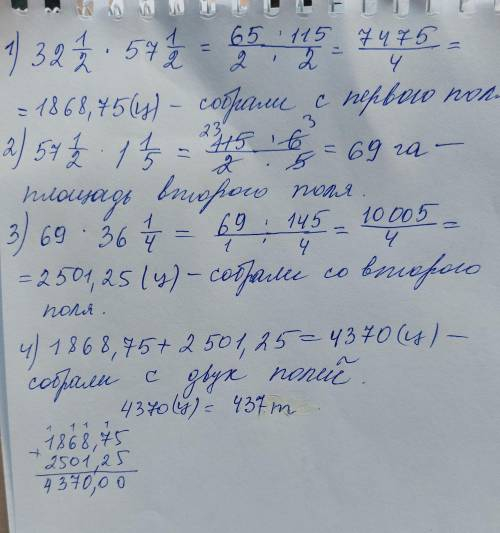 1) 32 1/2 · 57 1/2 = 65 · 115 / 2 · 2 = 7475/4 =
= 1868,75 (ц) – собрали с первого пол
2) 57 1/2 · 1 1/5 = 23 115 · 6 3 / 2 · 5 = 69 га –
площадь второго поля.
3) 69 · 36 1/4 = 69 · 145 / 1 · 4 = 10005/4 =
= 2501,25 (ц) – собрали со второго
поля.
4) 1868,75 + 2501,25 = 4370 (ц) –
собрали с двух полей.
4370 (ц) = 437 т
1 1 1 1
1868,75
+ 2501,25
4370,00